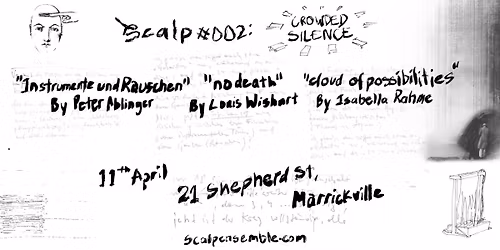 Scalp #002:
CROWDED
SILENCE
"Instrumente und Rauschen" "no death" "cloud of possibilities"
By Peter Ablinger By Louis Wishart By Isabella Rahme
11th April
21 Shepherd St,
Marrickville
scalpensemble.com